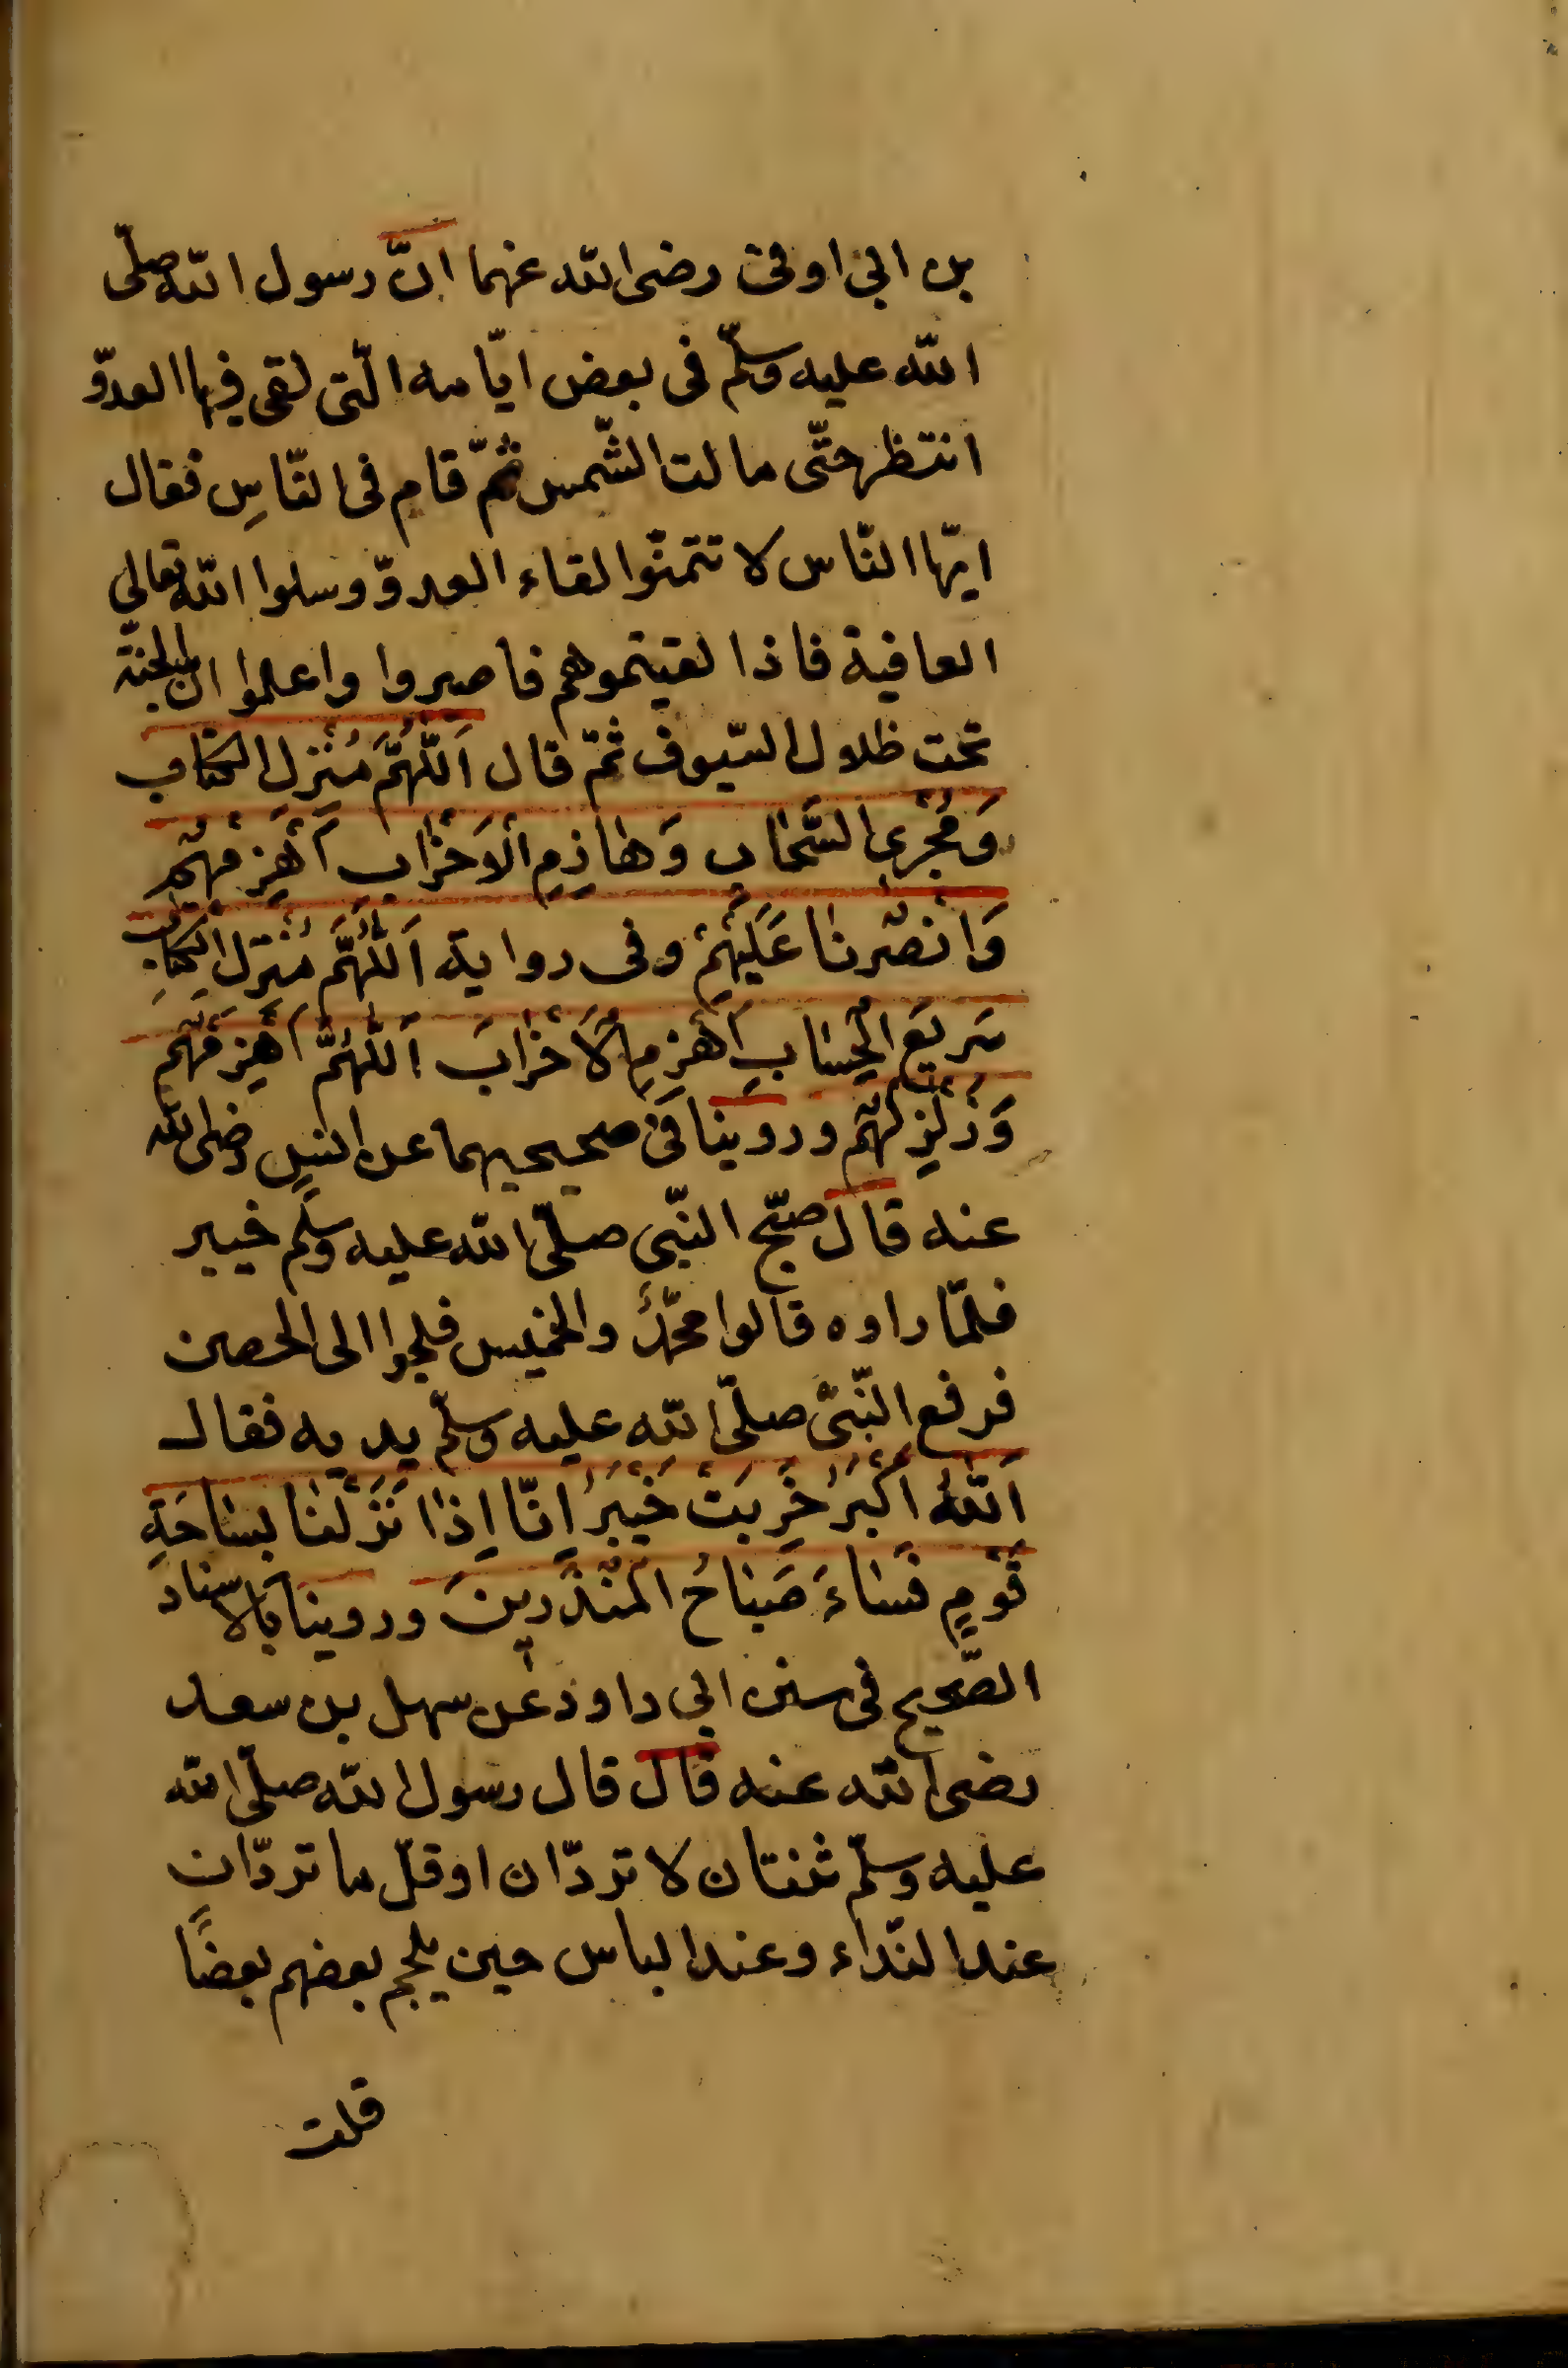 بن ابى اوفى رضى الله عنهما انّ رسول الله صلّى
الله عليه وسلّم فى بعض ايّامه الّتى لقى فيها العدوّ
انتظر حتّى مالت الشّمس ثمّ قام فى النّاسِ فقال
ايّها النّاس لا تتمنّوا لقاء العدوّ وسلوا الله تعالى
العافية فاذا لقيتموهم فاصبروا واعلموا انّ الجنّة
تحت ظلال السّيوف ثمّ قال اَللّٰهُمَّ مُنْزِلَ الكِتَابِ
وَمُجْرِىَ السَّحَابِ وَهَازِمِ الْاَحْزَابِ اَهْزِمْهُمْ
وَانْصُرْنَا عَلَيْهِمْ وفى رواية اَللّٰهُمَّ مُنْزِلَ الكِتَابِ
سَرِيعَ الْحِسَابِ اَهْزِمِ الْاَحْزَابَ اَللّٰهُمَّ اَهْزِمْهُمْ
وَزَلْزِلْهُمْ وروينا فى صحيحيهما عن انسٍ رضى الله
عنه قال صبّح النّبى صلّى الله عليه وسلّم خيبر
فلمّا راوه قالوا محمّدٌ والخميس فلجوا الى الحصن
فرفع النّبىّ صلّى الله عليه وسلّم يديه فقال
اَللّٰهُ اَكْبَرُ خَرِبَتْ خَيْبَرُ اِنّا اِذَا نَزَلْنَا بِسَاحَةِ
قَوْمٍ فَسَاءَ صَبَاحُ الْمُنْذَرِينَ وروينا بالاسناد
الصّحيح فى سنن ابى داود عن سهل بن سعد
رضى الله عنه قال قال رسول الله صلّى الله
عليه وسلّم ثنتان لا تردّان او قلّ ما تردّان
عند النّداء وعند الباس حين يلجم بعضهم بعضًا
قلت